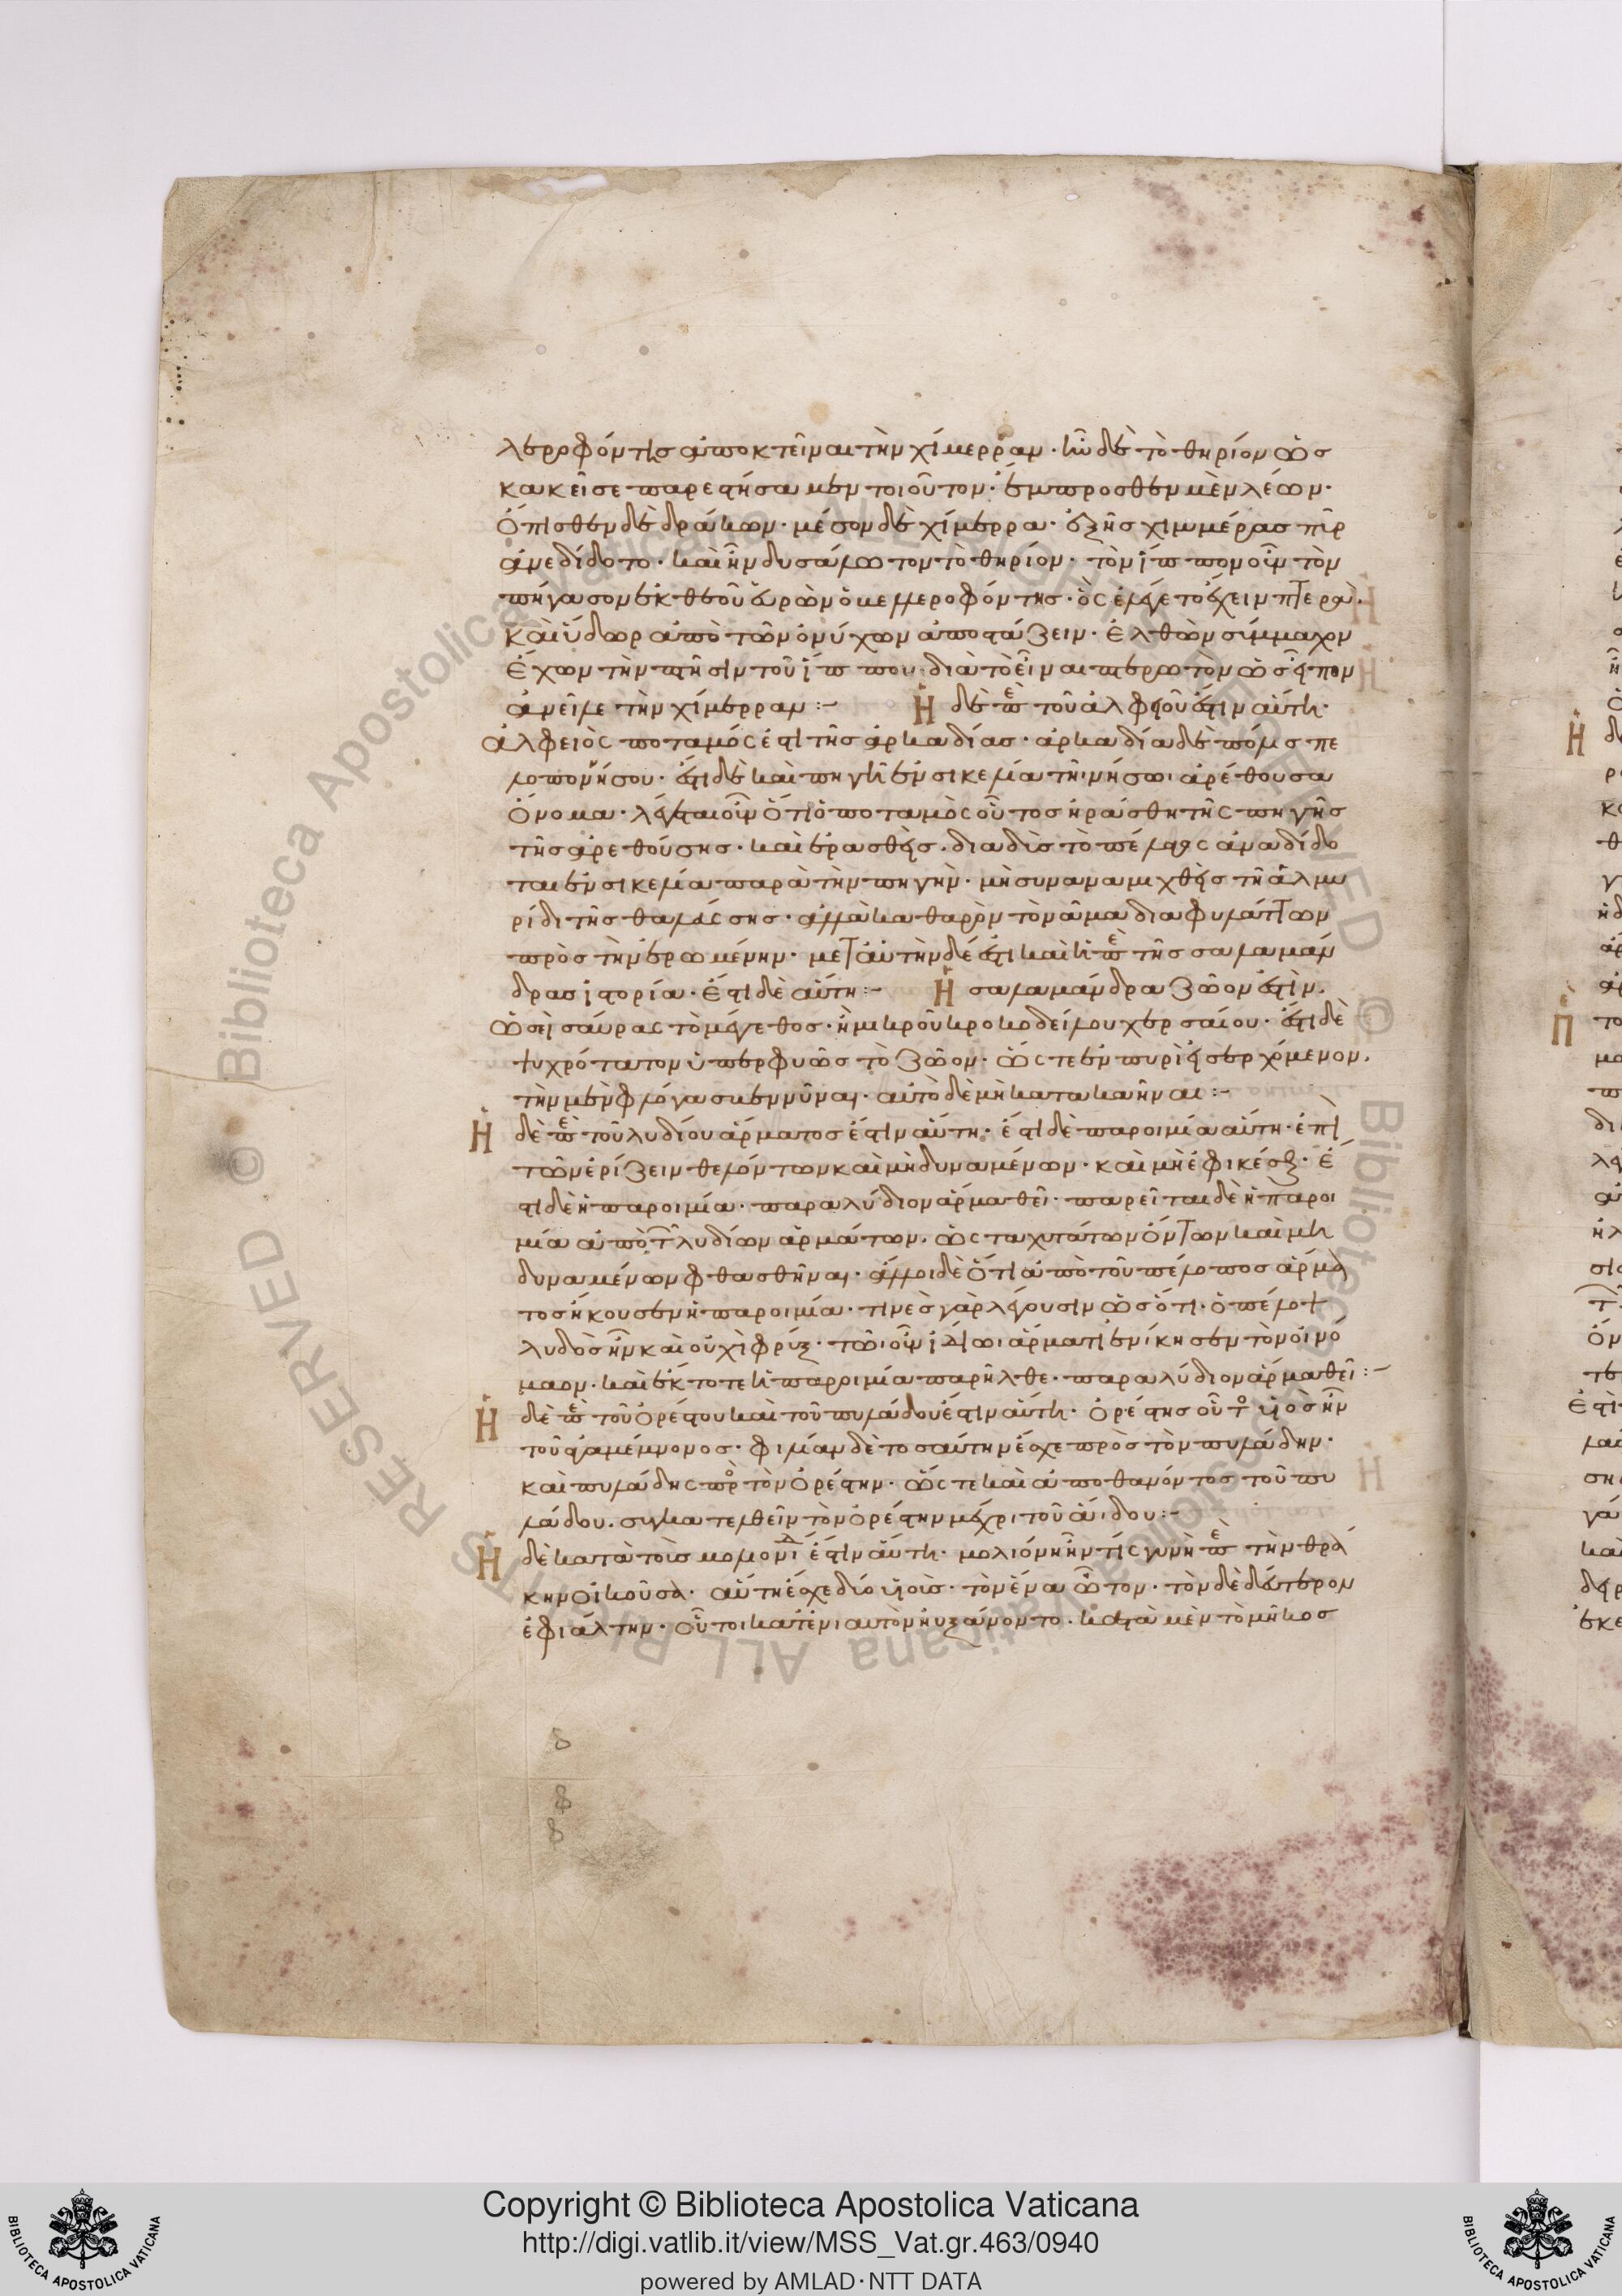 λεροφόντης ἀποκτεῖναι τὴν χίμερραν· ἦν δὲ τὸ θηρίον ὡς
κἀκεῖσε παρεστήσαμεν τοιοῦτον· ἔμπροσθεν μὲν λέων·
ὄπισθεν δὲ δράκων· μέσον δὲ χίμερρα· ἐξ ἧς χιμμέρας πῦρ
ἀνεδίδοτο· καὶ ἦν δυσάλωτον τὸ θηρίον· τὸν ἵππον οὖν τὸν
πήγασον ἐκ θεοῦ εὑρὼν ὁ βελλεροφόντης· ὃς ἐλέγετο ἔχειν πτερά·
καὶ ὕδωρ ἀπὸ τῶν ὀνύχων ἀποστάζειν· ἐλθὼν σύμμαχον
ἔχων τὴν πτῆσιν τοῦ ἵππου διὰ τὸ εἶναι πτερωτὸν ὡς εἶπον
ἀνεῖλε τὴν χίμερραν :- Ἡ δὲ περὶ τοῦ ἀλφειοῦ ἐστιν αὕτη·
ἀλφειὸς ποταμός ἐστι τῆς ἀρκαδίας· ἀρκαδία δὲ πόλις πε
λοπονήσου· ἔστι δὲ καὶ πηγὴ ἐν σικελία τῆι νήσωι ἀρέθουσα
ὄνομα· λέγεται οὖν ὅτι ὁ ποταμὸς οὗτος ἠράσθη τῆς πηγῆς
τῆς ἀρεθούσης· καὶ ἐρασθεὶς· διαδὺς τὸ πέλαγος ἀναδίδο
ται ἐν σικελία παρὰ τὴν πηγήν· μὴ συναναμιχθεὶς τῆ ἁλμυ
ρίδι τῆς θαλάσσης· ἀλλὰ καθαρὸν τὸν ἅμα διαφυλάττων
πρὸς τὴν ἐρωμένην· μετ' αὐτὴν δέ ἐστι καὶ ἡ περὶ τῆς σαλαμάν
δρας ἱστορία· ἔστι δὲ αὕτη :- Ἡ σαλαμάνδρα ζῶον ἐστὶν·
ὡσεὶ σαύρας τὸ μέγεθος· ἢ μικροῦ κροκοδείλου χερσαίου· ἔστι δὲ
ψυχρότατον ὑπερφυῶς τὸ ζῶον· ὥς τε ἐν πυρὶ εἰσερχόμενον·
τὴν μὲν φλόγα σκεννῦναι· αὐτὸ δὲ μὴ κατακαῆναι :-
Ἡ δὲ περὶ τοῦ λυδίου ἅρματος ἐστὶν αὕτη· ἔστι δὲ παροιμία αὕτη· ἐπὶ
τῶν ἐρίζειν θελόντων καὶ μὴ δυναμένων· καὶ μὴ ἐφικέσθαι· ἔ
στι δὲ ἡ παροιμία· παρα λύδιον ἅρμα θεῖ· παρεῖται δὲ ἡ παροι
μία ἀπὸ τῶν λυδίων ἁρμάτων· ὡς ταχυτάτων ὄντων καὶ μὴ
δυναμένων φθασθῆναι· ἄλλοι δὲ ὅτι ἀπὸ τοῦ πέλοπος ἅρμα
τος ἤκουσεν ἡ παροιμία· τινὲς γὰρ λέγουσιν ὡς ὅτι· ὁ πέλοψ
λυδὸς ἦν καὶ οὐχὶ φρύξ· τῶι οὖν ἰδίωι ἅρματι ἐνίκησεν τὸν οἰνό
μαον· καὶ ἔκτοτε ἡ παροιμία παρῆλθε· παρα λύδιον ἅρμα θεῖ :-
Ἡ δὲ περὶ τοῦ ὀρέστου καὶ τοῦ πυλάδου ἐστὶν αὕτη· ὀρέστης οὗτος υἱὸς ἦν
τοῦ ἀγαμέμνονος· φιλίαν δὲ τοσαύτην ἔσχε πρὸς τὸν πυλάδην·
καὶ πυλάδης πρὸς τὸν ὀρέστην· ὥς τε καὶ ἀποθανόντος τοῦ πυ
λάδου· συγκατελθεῖν τὸν ὀρέστην μέχρι τοῦ ἅιδου :-
Ἡ δὲ κατὰ τοὺς μολιονίδας ἐστὶν αὕτη· μολιόνη ἦν τίς γυνὴ περὶ τὴν θρά
κην οἰκοῦσα· αὕτη ἔσχε δύο υἱοὺς· τὸν ἕνα ὦτον· τὸν δὲ δεύτερον
ἐφιάλτην· οὗτοι κατ' ἐνιαυτὸν ηὐξάνοντο· κατὰ μὲν τὸ μῆκος
Copyright © Biblioteca Apostolica Vaticana
http://digi.vatlib.it/view/MSS_Vat.gr.463/0940
powered by AMLAD·NTT DATA